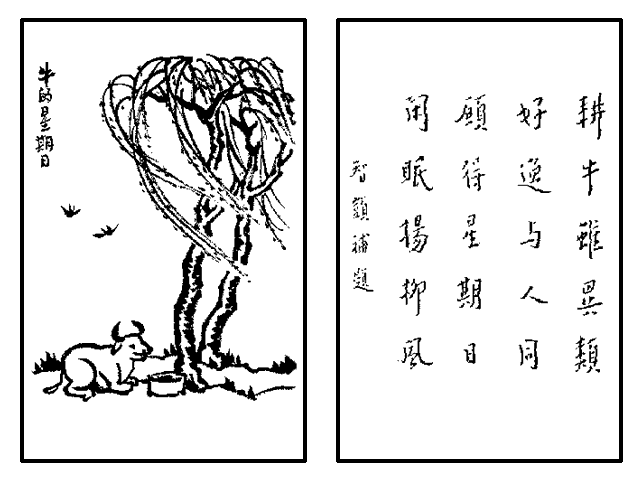 牛的星期日
耕牛雖異類
好逸与人同
願得星期日
閑眠楊柳風
智顗補題